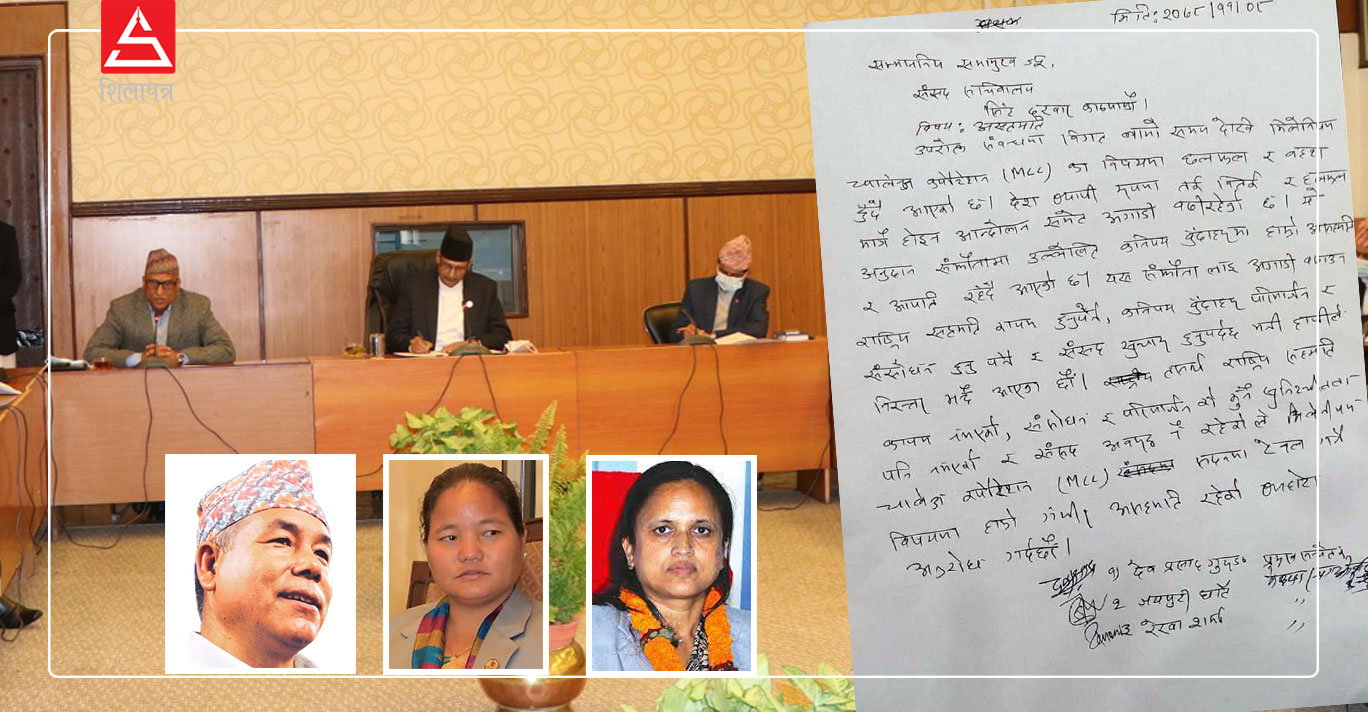 शिलापत्र
मिति: २०७८/११/०८
सम्मानिय सभामुख ज्यू,
संसद सचिवालय
सिंह दरवार काठमाण्डौं।
विषय: असहमति
उपरोक्त संबन्धमा विगत लामो समय देखि मिलेनियम
च्यालेन्ज कर्पोरेशन (MCC) का विषयमा छलफल र बहस
हुँदै आएको छ। देश व्यापी रुपमा तर्क वितर्क र छलफल
मात्रै होइन आन्दोलन समेत अगाडी बढीरहेको छ। यो
अनुदान संझौतामा उल्लेखित कतिपय बुंदाहरुमा हाम्रो असहमति
र आपत्ति रहँदै आएको छ। यस संझौता लाई अगाडी बढाउन
राष्ट्रिय सहमति कायम हुनुपर्ने, कतिपय बुंदाहरु परिमार्जन र
संसोधन हुनु पर्ने र संसद सुचारु हुनुपर्दछ भनी हामीले
निरन्तर भन्दै आएका छौं। तसर्थ राष्ट्रिय सहमति
कायम नभएको, संसोधन र परिमार्जन को कुनै सुनिश्चितता
पनि नभएको र संसद अवरुद्ध नै रहेकोले मिलेनीयम
च्यालेन्ज कर्पोरेशन (MCC) सदनमा टेबल गर्ने
विषयमा हाम्रो असहमति रहेको व्यहोरा
अनुरोध गर्दछौं।
१) देव प्रसाद गुरुङ प्रमुख सचेतक
२ जयपुरी घर्ति "
३ रेखा शर्मा "